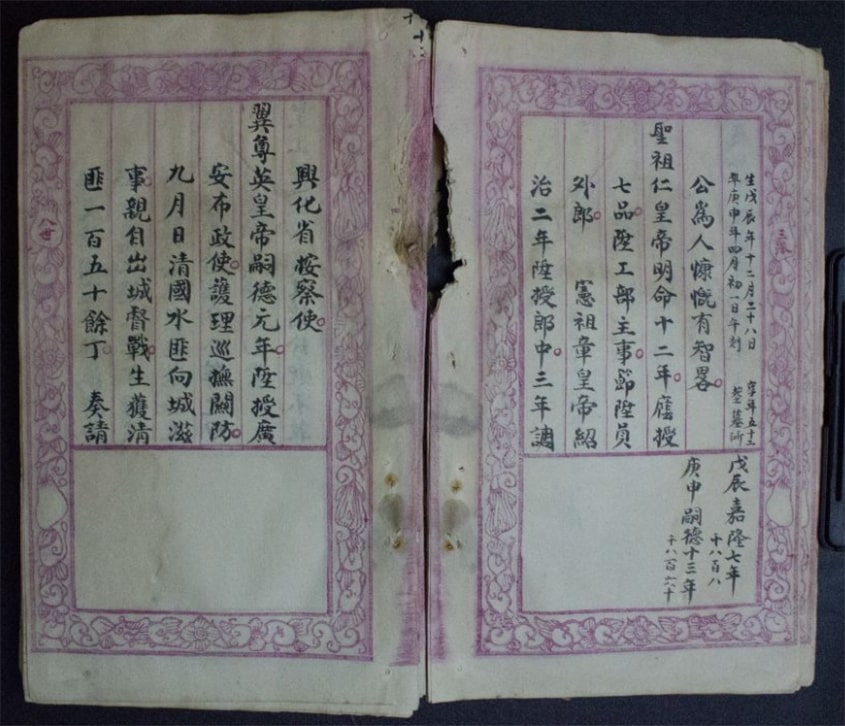 生戊辰年十二月二十八日 享年五十三
卒庚申年四月初一日午刻
公為人慷慨有智畧
聖祖仁皇帝明命十二年廕授
七品陞工部主事節陞員
外郎 憲祖章皇帝紹
治二年陞授郎中三年調
戊辰嘉隆七年
十八百八
庚申嗣德十三年
十八百六十
興化省按察使
翼尊英皇帝嗣德元年陞授廣
安布政使護理巡撫關防
九月日清國水匪向城滋
事親自出城督戰生獲清
匪一百五十餘丁 奏請